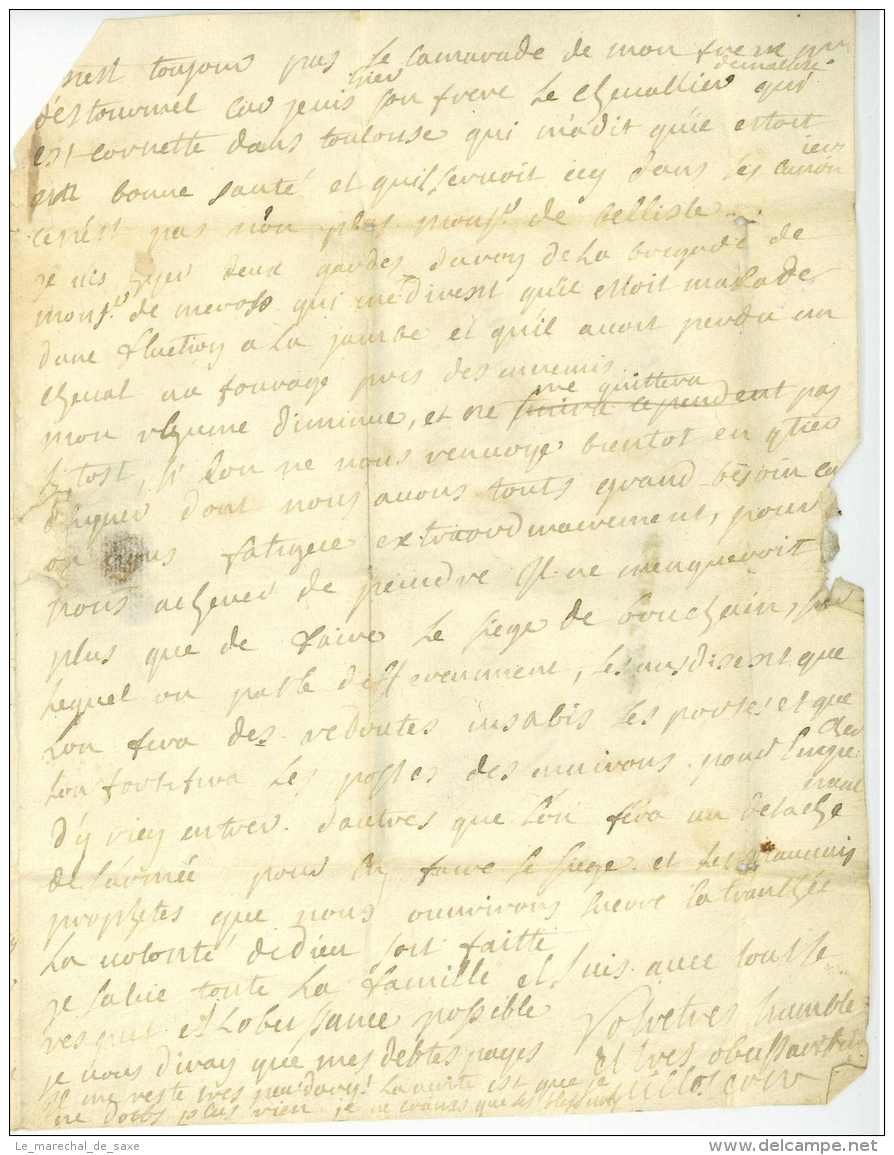 nest toujour pas le camarade de mon frere
destourmel car je vis hier son frere le chevallier qui
demattre
est cornette dans toulouse qui m'a dit qu'il estoit
en bonne santé et quil servoit icy dans les
ce n'est pas non plus monsr de bellisle
je vis hyer deux gardes du roy de la brigade de
monsr de qui me dirent qu'il estoit malade
dune fluction a la jambe et quil avoit perdu un
cheval au fourage pris des ennemis
me quittera
mon rhume diminue, et ne suivra cependent pas
si tost, si lon ne nous renvoye bientot en
dhyver dont nous avons touts grand besoin car
on nous fatigue extraordinairement, pour
nous achever de peindre il ne manqueroit
plus que de faire le siege de bouchain, sur
lequel on parle differenment, les uns disent que
lon fera des redoutes vis a vis les portes et que
lon fortifira les postes des environs pour
d'y rien entrer. dautres que l'on fera un detache
ment
de l'armée pour en faire le siege. et les mauvais
prophetes que nous ouvrirons encore la tranchée
la volonté de dieu soit faitte
je salue toute la famille et suis avec tout le
respect et lobeissance possible
Vostre tres humble
je vous diray que mes debtes payés et tres obeissant
il me reste tres peu la verité est que je
ne dois plus rien je ne crains que les
Le_marechal_de_saxe
www.delcampe.net